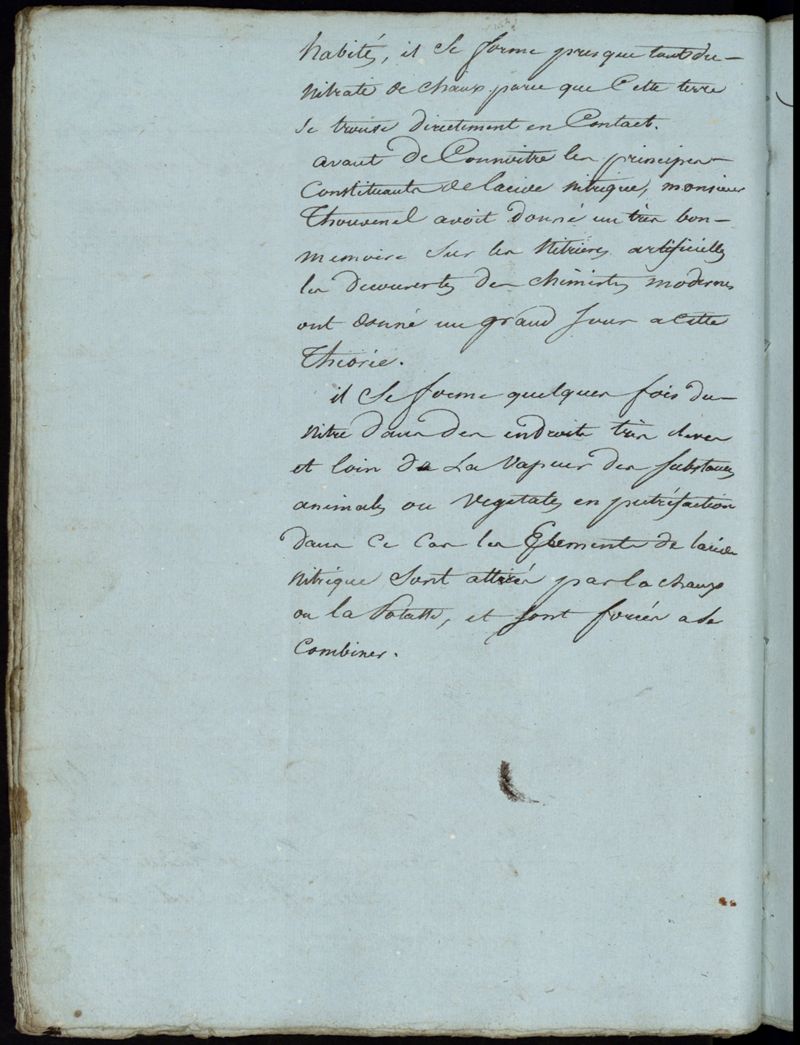 habités, il se forme presque tout du
nitrate de chaux parce que Cette terre
se trouve directement en Contact.
avant de Connoitre les principes
Constituants de lacide nitrique, monsieur
Thouvenel avoit donné un très bon
memoire sur les Nitrieres artificielles
les decouvertes des chimistes modernes
ont donné un grand jour a cette
Théorie.
il se forme quelques fois du
nitre dans des endroits très eleves
et loin de La Vapeur des substances
animales ou vegetales en putréfaction
dans ce Cas les Elements de lacide
nitrique sont attirés par la chaux
ou la Potasse, et sont forcés a se
Combiner.